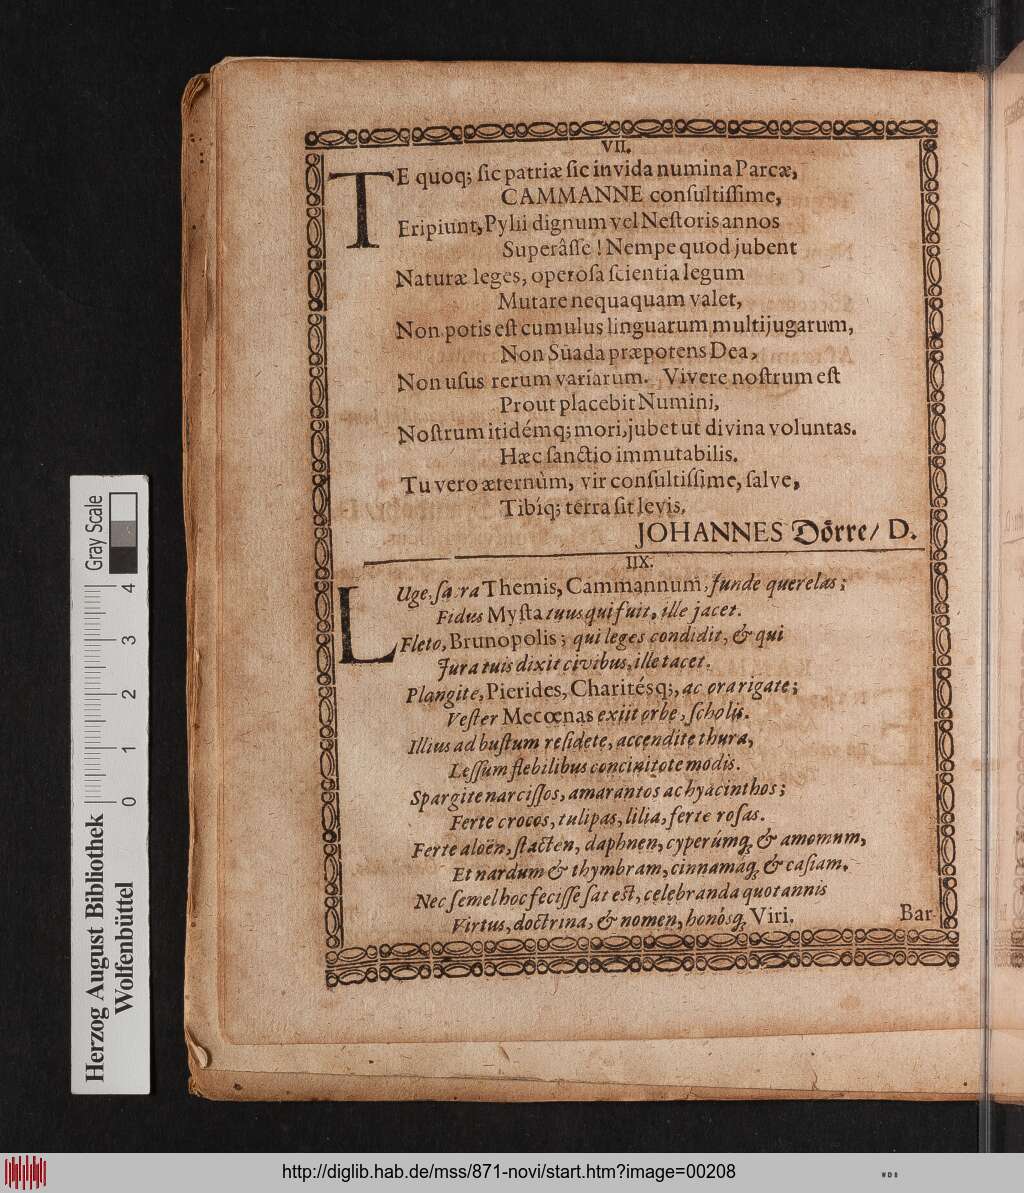 VII.
TE quoq; ſic patriæ ſic invida numina Parcæ,
CAMMANNE conſultiſſime,
Eripiunt, Pylii dignum vel Neſtoris annos
Superâſſe! Nempe quod jubent
Naturæ leges, operoſa ſcientia legum
Mutare nequaquam valet,
Non potis eſt cumulus linguarum multijugarum,
Non Sūada præpotens Dea,
Non uſus rerum variarum. Vivere noſtrum eſt
Prout placebit Numini,
Noſtrum itidémq; mori, jubet ut divina voluntas.
Hæc ſanctio immutabilis.
Tu vero æternùm, vir conſultiſſime, ſalve,
Tibíq; terra ſit levis.
JOHANNES Dörre/ D.
IIX.
LUge, ſacra Themis, Cammannum: funde querelas;
Fidus Myſta tuus qui fuit, ille jacet.
Fleto, Brunopolis; qui leges condidit, & qui
Jura tuis dixit civibus, ille tacet.
Plangite, Pierides, Charitésq;, ac ora rigate;
Veſter Mecœnas exiit orbe, ſcholis.
Illius ad buſtum reſidete, accendite thura,
Leſſum flebilibus concinitote modis.
Spargite narciſſos, amarantos ac hyacinthos;
Ferte crocos, tulipas, lilia, ferte roſas.
Ferte aloën, ſtacten, daphnen, cyperúmq; & amomum,
Et nardum & thymbram, cinnamáq; & caſiam.
Nec ſemel hoc feciſſe ſat eſt, celebranda quotannis
Virtus, doctrina, & nomen, honósq; Viri.
Bar-
Gray Scale
4
3
2
1
0
Herzog August Bibliothek
Wolfenbüttel
http://diglib.hab.de/mss/871-novi/start.htm?image=00208